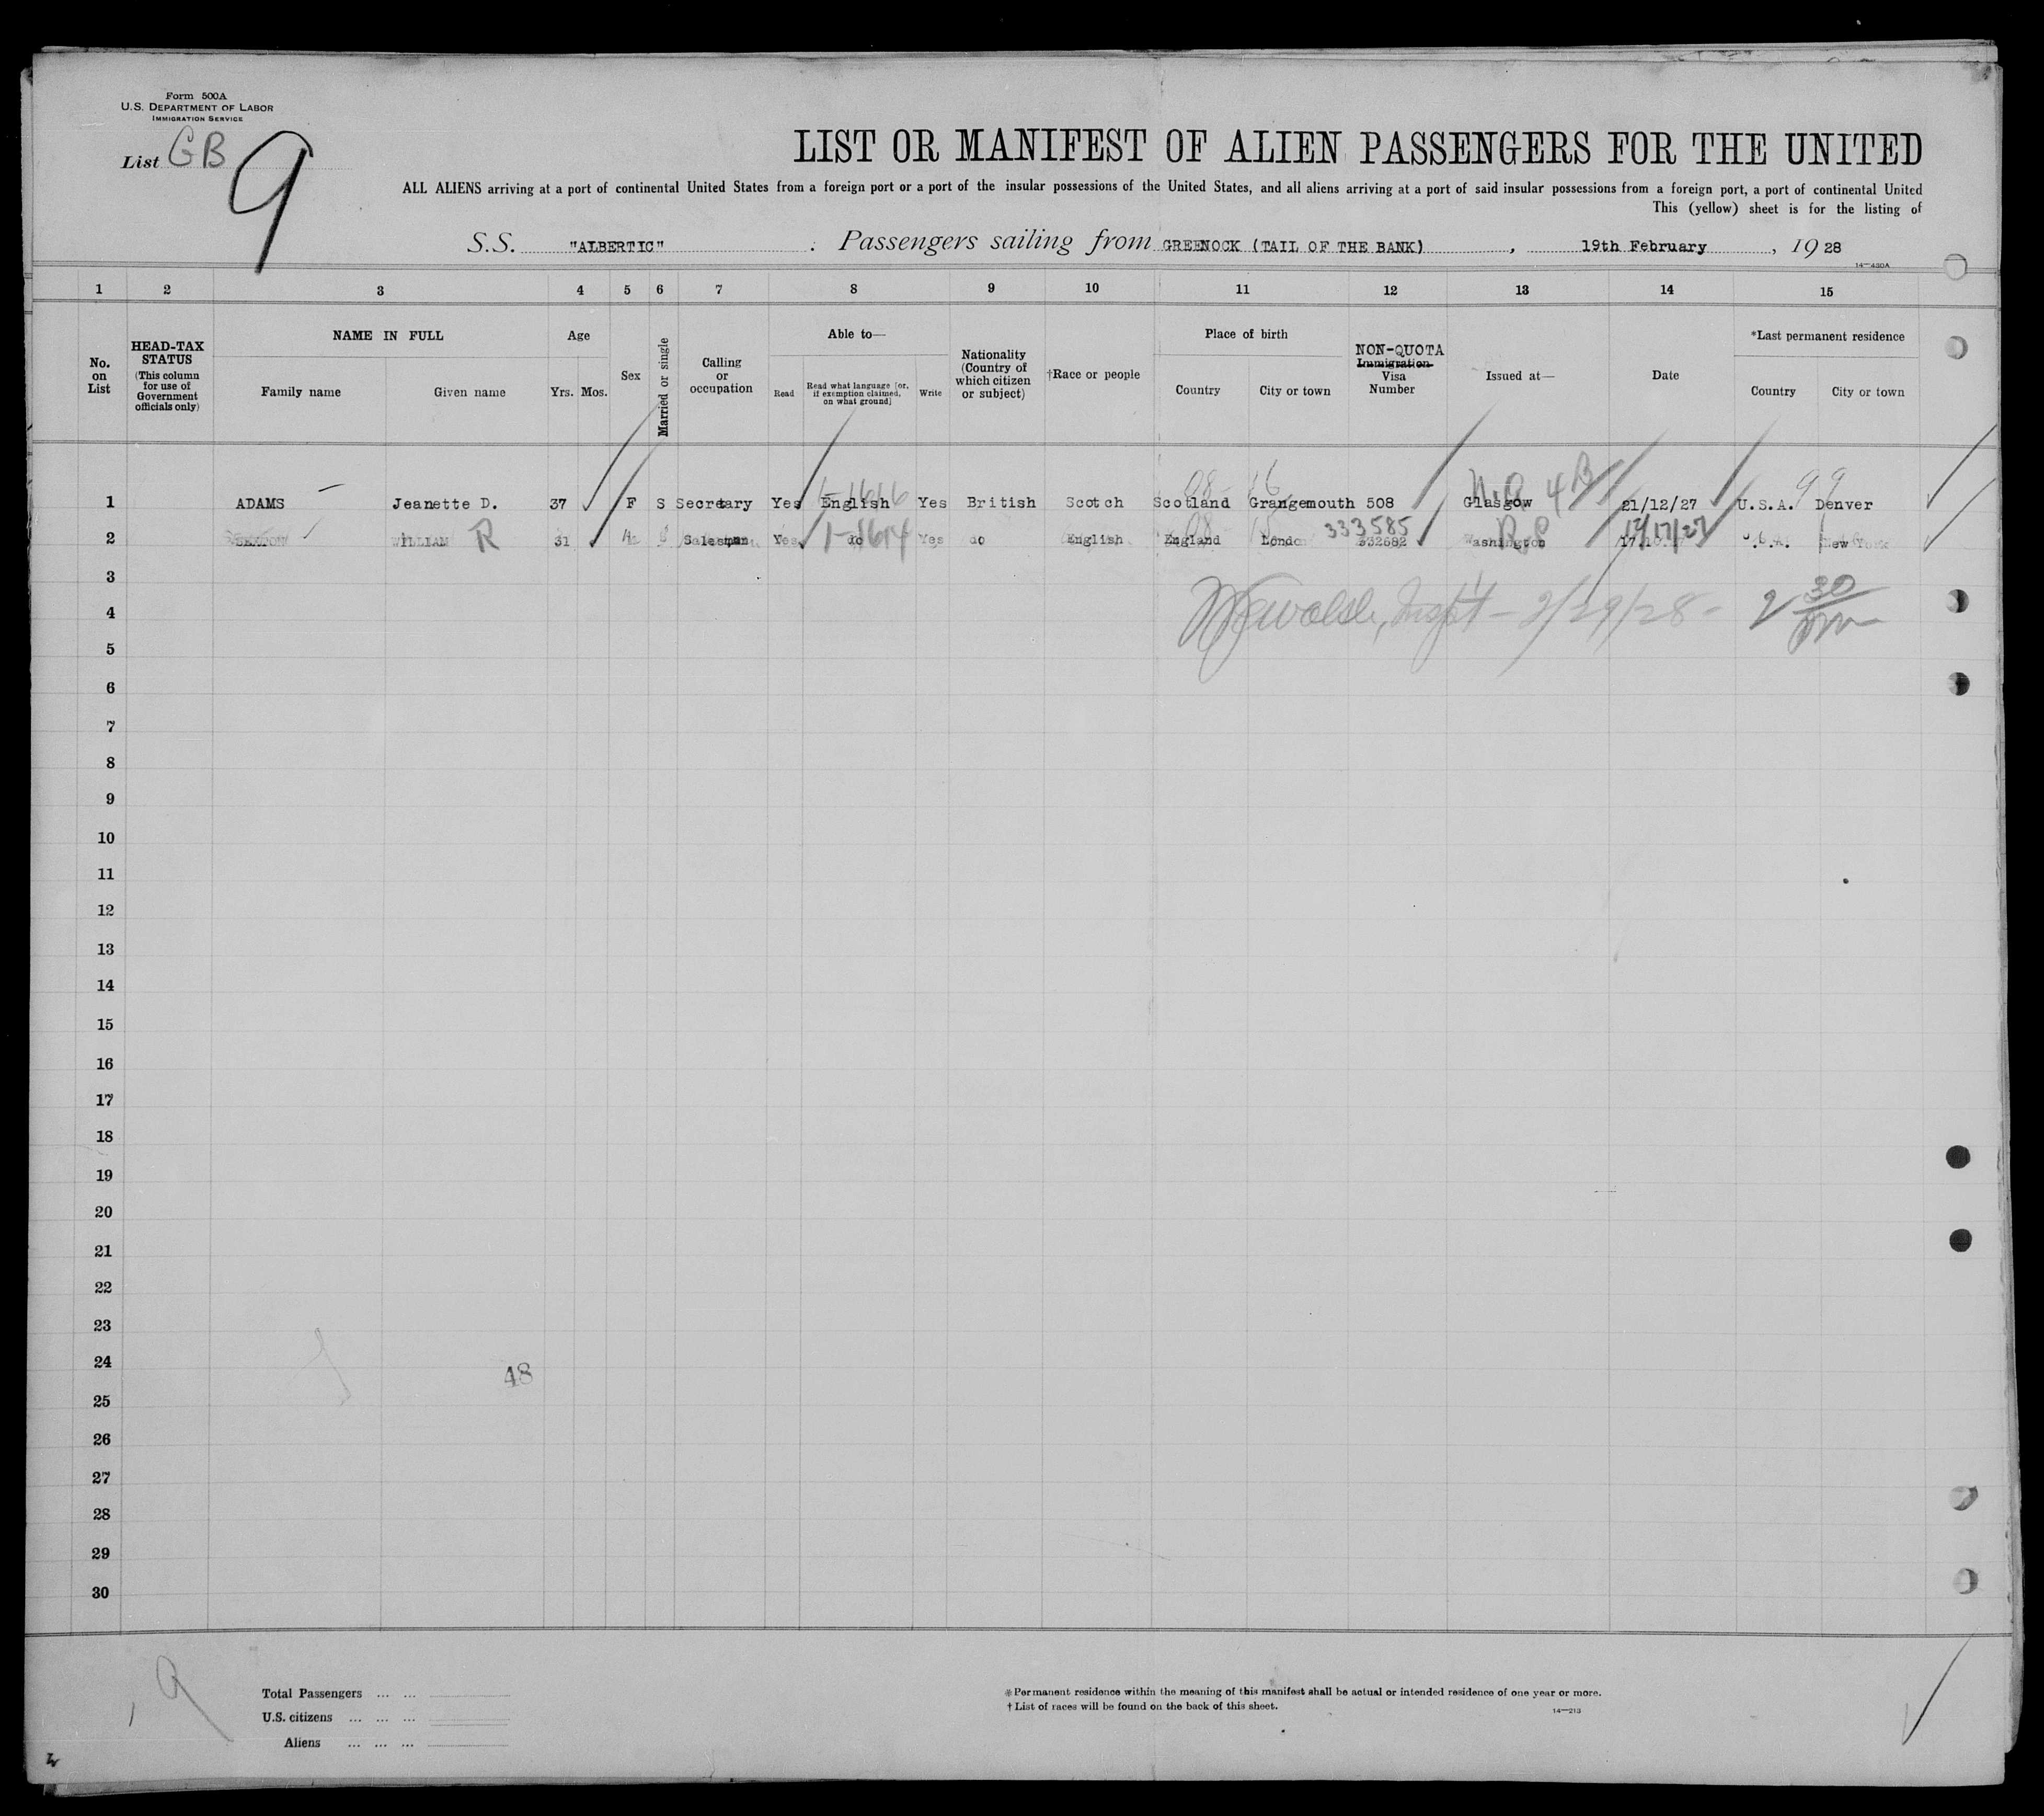 Form 500A
U.S. DEPARTMENT OF LABOR
IMMIGRATION SERVICE
List GB
9
LIST OR MANIFEST OF ALIEN PASSENGERS FOR THE UNITED
ALL ALIENS arriving at a port of continental United States from a foreign port or a port of the insular possessions of the United States, and all aliens arriving at a port of said insular possessions from a foreign port, a port of continental United
This (yellow) sheet is for the listing of
S.S. "ALBERTIC" . Passengers sailing from GREENOCK (TAIL OF THE BANK) , 19th February , 1928
14—430A
1 2 3 4 5 6 7 8 9 10 11 12 13 14 15
No. on List
HEAD-TAX STATUS (This column for use of Government officials only)
NAME IN FULL
Family name Given name
Age
Yrs. Mos.
Sex
Married or single
Calling or occupation
Able to—
Read Read what language [or, if exemption claimed, on what ground] Write
Nationality (Country of which citizen or subject)
†Race or people
Place of birth
Country City or town
NON-QUOTA
Immigration Visa Number
Issued at—
Date
*Last permanent residence
Country City or town
08 16 4B 99
1 ADAMS Jeanette D. 37 F S Secretary Yes English Yes British Scotch Scotland Grangemouth 508 Glasgow 21/12/27 U.S.A. Denver
333585 12/17/27
2 WILLIAM R 31 Salesman Yes do Yes do English England London 332582 Washington New York
2/29/28 - 2 30
3
4
5
6
7
8
9
10
11
12
13
14
15
16
17
18
19
20
21
22
23
24
48
25
26
27
28
29
30
9
Total Passengers ... ...
U.S. citizens ... ... ...
Aliens ... ... ...
* Permanent residence within the meaning of this manifest shall be actual or intended residence of one year or more.
† List of races will be found on the back of this sheet.
14—213